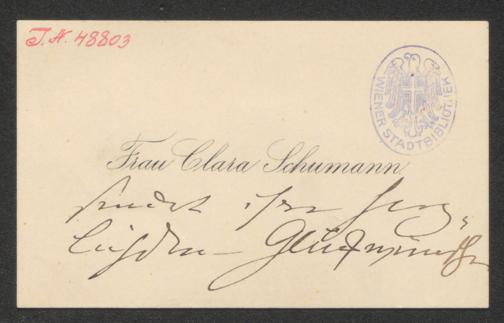 J.N. 48803
WIENER STADTBIBLIOTHEK
Frau Clara Schumann
sendet ihre herz-
lichsten Glückwünsche